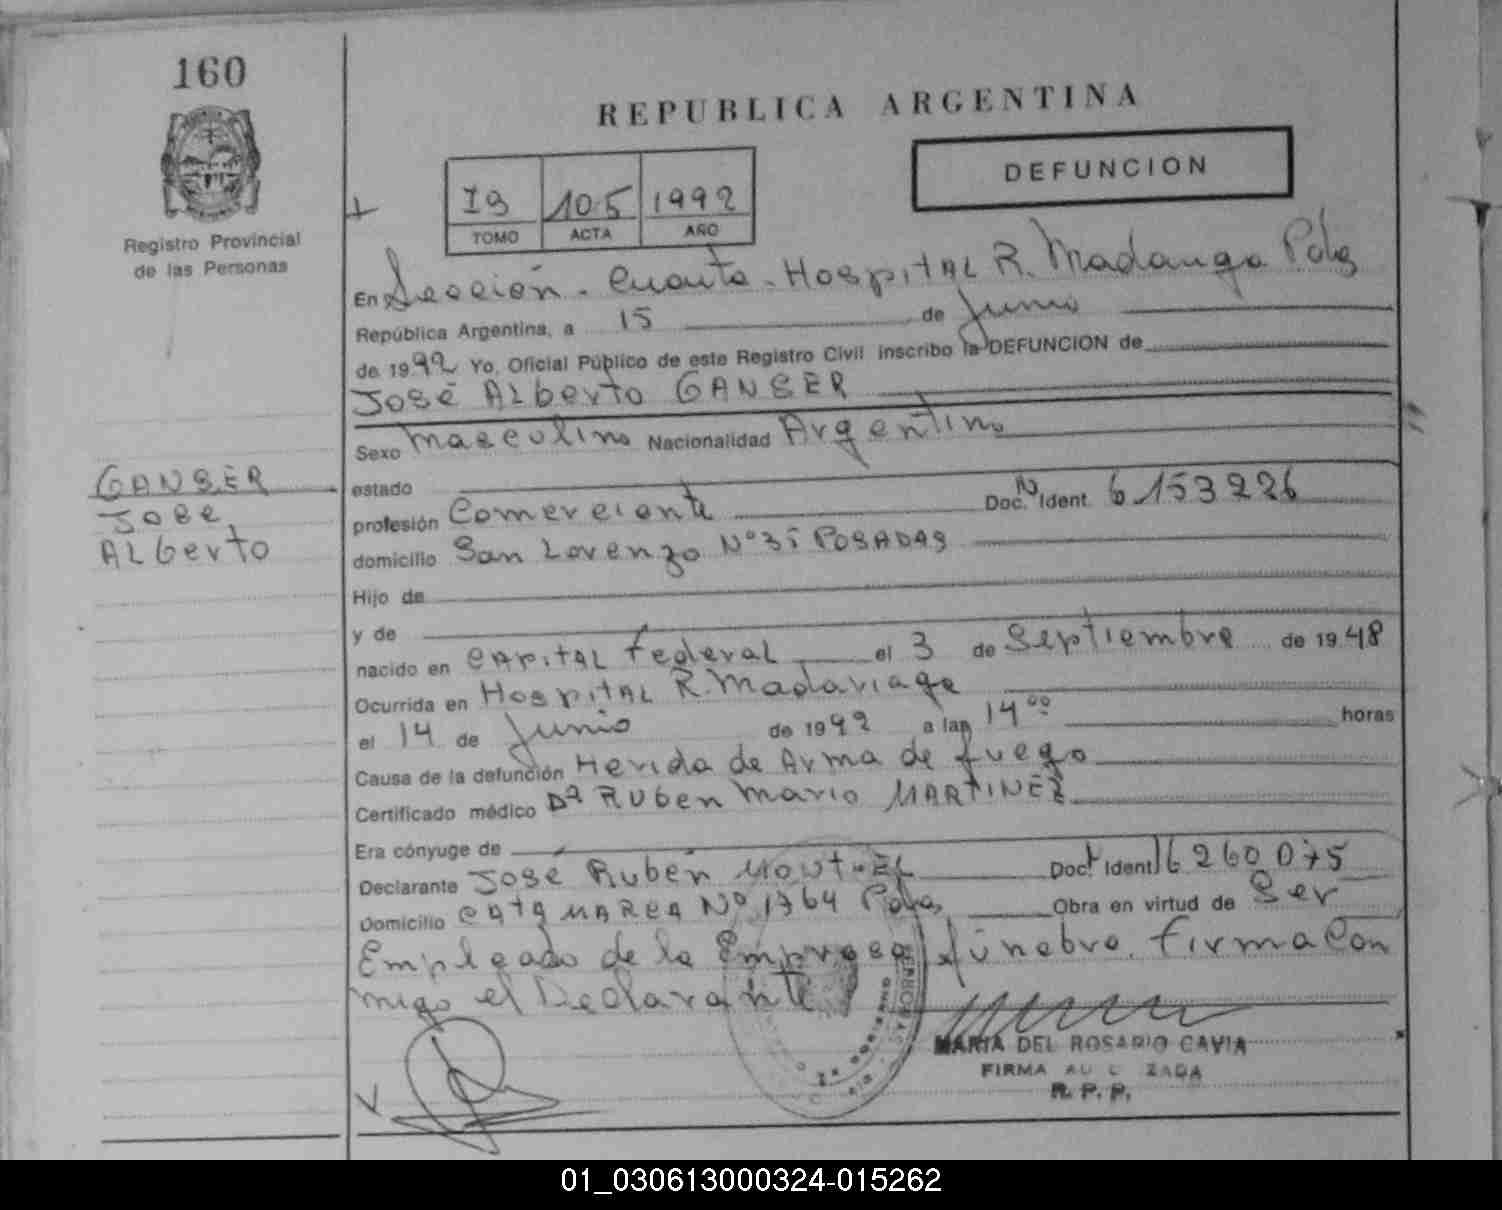 160
Registro Provincial
de las Personas
REPUBLICA ARGENTINA
DEFUNCION
I9 105 1992
TOMO ACTA AÑO
En Sección Cuarta - Hospital R. Madariaga Pdas
República Argentina, a 15 de Junio
de 1992 Yo, Oficial Público de este Registro Civil inscribo la DEFUNCION de
José Alberto GANSER
Sexo Masculino Nacionalidad Argentino
GANSER
Jose
Alberto
estado
profesión Comerciante Doc. Ident. 6153226
domicilio San Lorenzo Nº 35 POSADAS
Hijo de
y de
nacido en Capital Federal el 3 de Septiembre de 1948
Ocurrida en Hospital R. Madariaga
el 14 de Junio de 1992 a las 14 00 horas
Causa de la defunción Herida de Arma de fuego
Certificado médico Dr Ruben Mario MARTINEZ
Era cónyuge de
Declarante José Rubén Montiel Doc. Ident. 16260075
Domicilio CATAMARCA Nº 1764 Pdas, Obra en virtud de Ser
Empleado de la Empresa fúnebre. firma Con
migo el Declarante
MARIA DEL ROSARIO CAVIA
FIRMA AU ZADA
R. P. P.
01_030613000324-015262